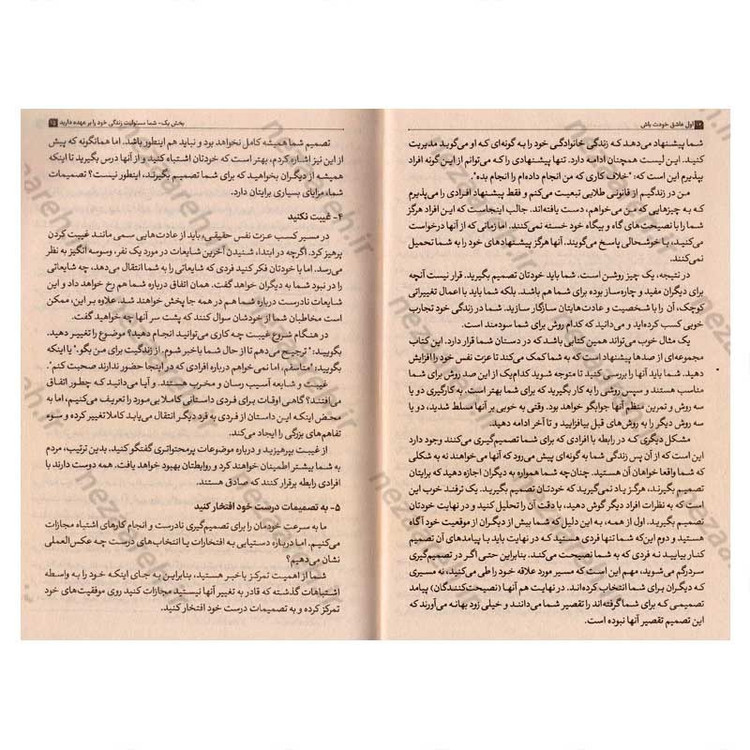 ۱۴ اول عاشق خودت باش
شما پیشنهاد می‌دهد که زندگی خانوادگی خود را به گونه‌ای که او می‌گوید مدیریت
کنید. این لیست همچنان ادامه دارد. تنها پیشنهادی را که می‌توانم از این گونه افراد
بپذیرم این است که: "خلاف کاری که من انجام داده‌ام را انجام بده".
من در زندگیم از قانونی طلایی تبعیت می‌کنم و فقط پیشنهاد افرادی را می‌پذیرم
که به چیزهایی که من می‌خواهم، دست یافته‌اند. جالب اینجاست که این افراد هرگز
شما را با نصیحت‌های گاه و بیگاه خود خسته نمی‌کنند. اما زمانی که از آنها درخواست
می‌کنید، با خوشحالی پاسخ می‌گویند. آنها هرگز پیشنهادهای خود را به شما تحمیل
نمی‌کنند.
در نتیجه، یک چیز روشن است. شما باید خودتان تصمیم بگیرید. قرار نیست آنچه
برای دیگران مفید و چاره‌ساز بوده برای شما هم باشد. بلکه شما باید با اعمال تغییراتی
کوچک، آن را با شخصیت و عادت‌هایتان سازگار سازید. شما در زندگی خود تجارب
خوبی کسب کرده‌اید و می‌دانید که کدام روش برای شما سودمند است.
یک مثال خوب می‌تواند همین کتابی باشد که در دستان شما قرار دارد. این کتاب
مجموعه‌ای از صدها پیشنهاد است که به شما کمک می‌کند تا عزت نفس خود را افزایش
دهید. شما باید آنها را بررسی کنید تا متوجه شوید کدام‌یک از این صد روش برای شما
مناسب هستند و سپس روشی را به کار بگیرید که برای شما بهتر است. به‌کارگیری دو یا
سه روش و تمرین منظم آنها جوابگو خواهد بود. وقتی به خوبی بر آنها مسلط شدید، دو یا
سه روش دیگر را به روش‌های قبل بیافزایید و تا آخر ادامه دهید.
مشکل دیگری که در رابطه با افرادی که برای شما تصمیم‌گیری می‌کنند وجود دارد
این است که از آن پس زندگی شما به گونه‌ای پیش می‌رود که آنها می‌خواهند نه به شکلی
که شما واقعا خواهان آن هستید. چنان‌چه شما همواره به دیگران اجازه دهید که برایتان
تصمیم بگیرند، هرگز یاد نمی‌گیرید که خودتان تصمیم بگیرید. یک ترفند خوب این
است که به نظرات افراد دیگر گوش دهید، با دقت آن را تحلیل کنید و در نهایت خودتان
تصمیم بگیرید. اول از همه، به این دلیل که شما بیش از دیگران از موقعیت خود آگاه
هستید و دوم این‌که شما تنها فردی هستید که در نهایت باید با پیامدهای آن تصمیم
کنار بیایید نه فردی که به شما نصیحت می‌کند. بنابراین حتی اگر در تصمیم‌گیری
سردرگم می‌شوید، مهم این است که مسیر مورد علاقه خود را طی می‌کنید، نه مسیری
که دیگران برای شما انتخاب کرده‌اند. در نهایت هم آنها (نصیحت‌کنندگان) پیامد
تصمیمی که برای شما گرفته‌اند را تقصیر شما می‌دانند و خیلی زود بهانه می‌آورند که
این تصمیم تقصیر آنها نبوده است.
بخش یک- شما مسئولیت زندگی خود را بر عهده دارید ۱۵
تصمیم شما همیشه کامل نخواهد بود و نباید هم اینطور باشد. اما همانگونه که پیش
از این نیز اشاره کردم، بهتر است که خودتان اشتباه کنید و از آنها درس بگیرید تا اینکه
همیشه از دیگران بخواهید که برای شما تصمیم بگیرند، اینطور نیست؟ تصمیمات
شما، مزایای بسیاری برایتان دارد.
۴- غیبت نکنید
در مسیر کسب عزت نفس حقیقی، باید از عادت‌هایی سمی مانند غیبت کردن
پرهیز کرد. اگرچه در ابتدا، شنیدن آخرین شایعات در مورد یک نفر، وسوسه انگیز به نظر
می‌رسد. اما با خودتان فکر کنید فردی که شایعاتی را به شما انتقال می‌دهد، چه شایعاتی
را در نبود شما به دیگران خواهد گفت. همان اتفاق درباره شما هم رخ خواهد داد و این
شایعات نادرست درباره شما هم در همه جا پخش خواهند شد. علاوه بر این، ممکن
است مخاطبان شما از خودشان سوال کنند که پشت سر آنها چه خواهید گفت.
در هنگام شروع غیبت چه کاری می‌توانید انجام دهید؟ موضوع را تغییر دهید.
بگویید: "ترجیح می‌دهم تا از حال شما باخبر شوم. از زندگیت برای من بگو." یا اینکه
بگویید: "متاسفم، اما نمی‌خواهم درباره افرادی که در اینجا حضور ندارند صحبت کنم".
غیبت و شایعه آسیب رسان و مخرب هستند. و آیا می‌دانید که چطور اتفاق
می‌افتند؟ گاهی اوقات برای فردی داستانی کاملا بی‌مورد را تعریف می‌کنیم، اما به
محض اینکه این داستان از فردی به فرد دیگر انتقال می‌یابد کاملا تغییر کرده و سوء
تفاهم‌های بزرگی را ایجاد می‌کند.
از غیبت بپرهیزید و درباره موضوعات پرمحتواتری گفتگو کنید. بدین ترتیب، مردم
به شما بیشتر اطمینان خواهند کرد و روابطتان بهبود خواهد یافت. همه دوست دارند با
افرادی رابطه برقرار کنند که صادق هستند.
۵- به تصمیمات درست خود افتخار کنید
ما به سرعت خودمان را برای تصمیم‌گیری نادرست و انجام کارهای اشتباه مجازات
می‌کنیم. اما درباره دستیابی به افتخارات یا انتخاب‌های درست چه عکس‌العملی
نشان می‌دهیم؟
شما از اهمیت تمرکز باخبر هستید، بنابراین به جای اینکه خود را به واسطه
اشتباهات گذشته که قادر به تغییر آنها نیستید مجازات کنید روی موفقیت‌های خود
تمرکز کرده و به تصمیمات درست خود افتخار کنید.
nezaareh.ir